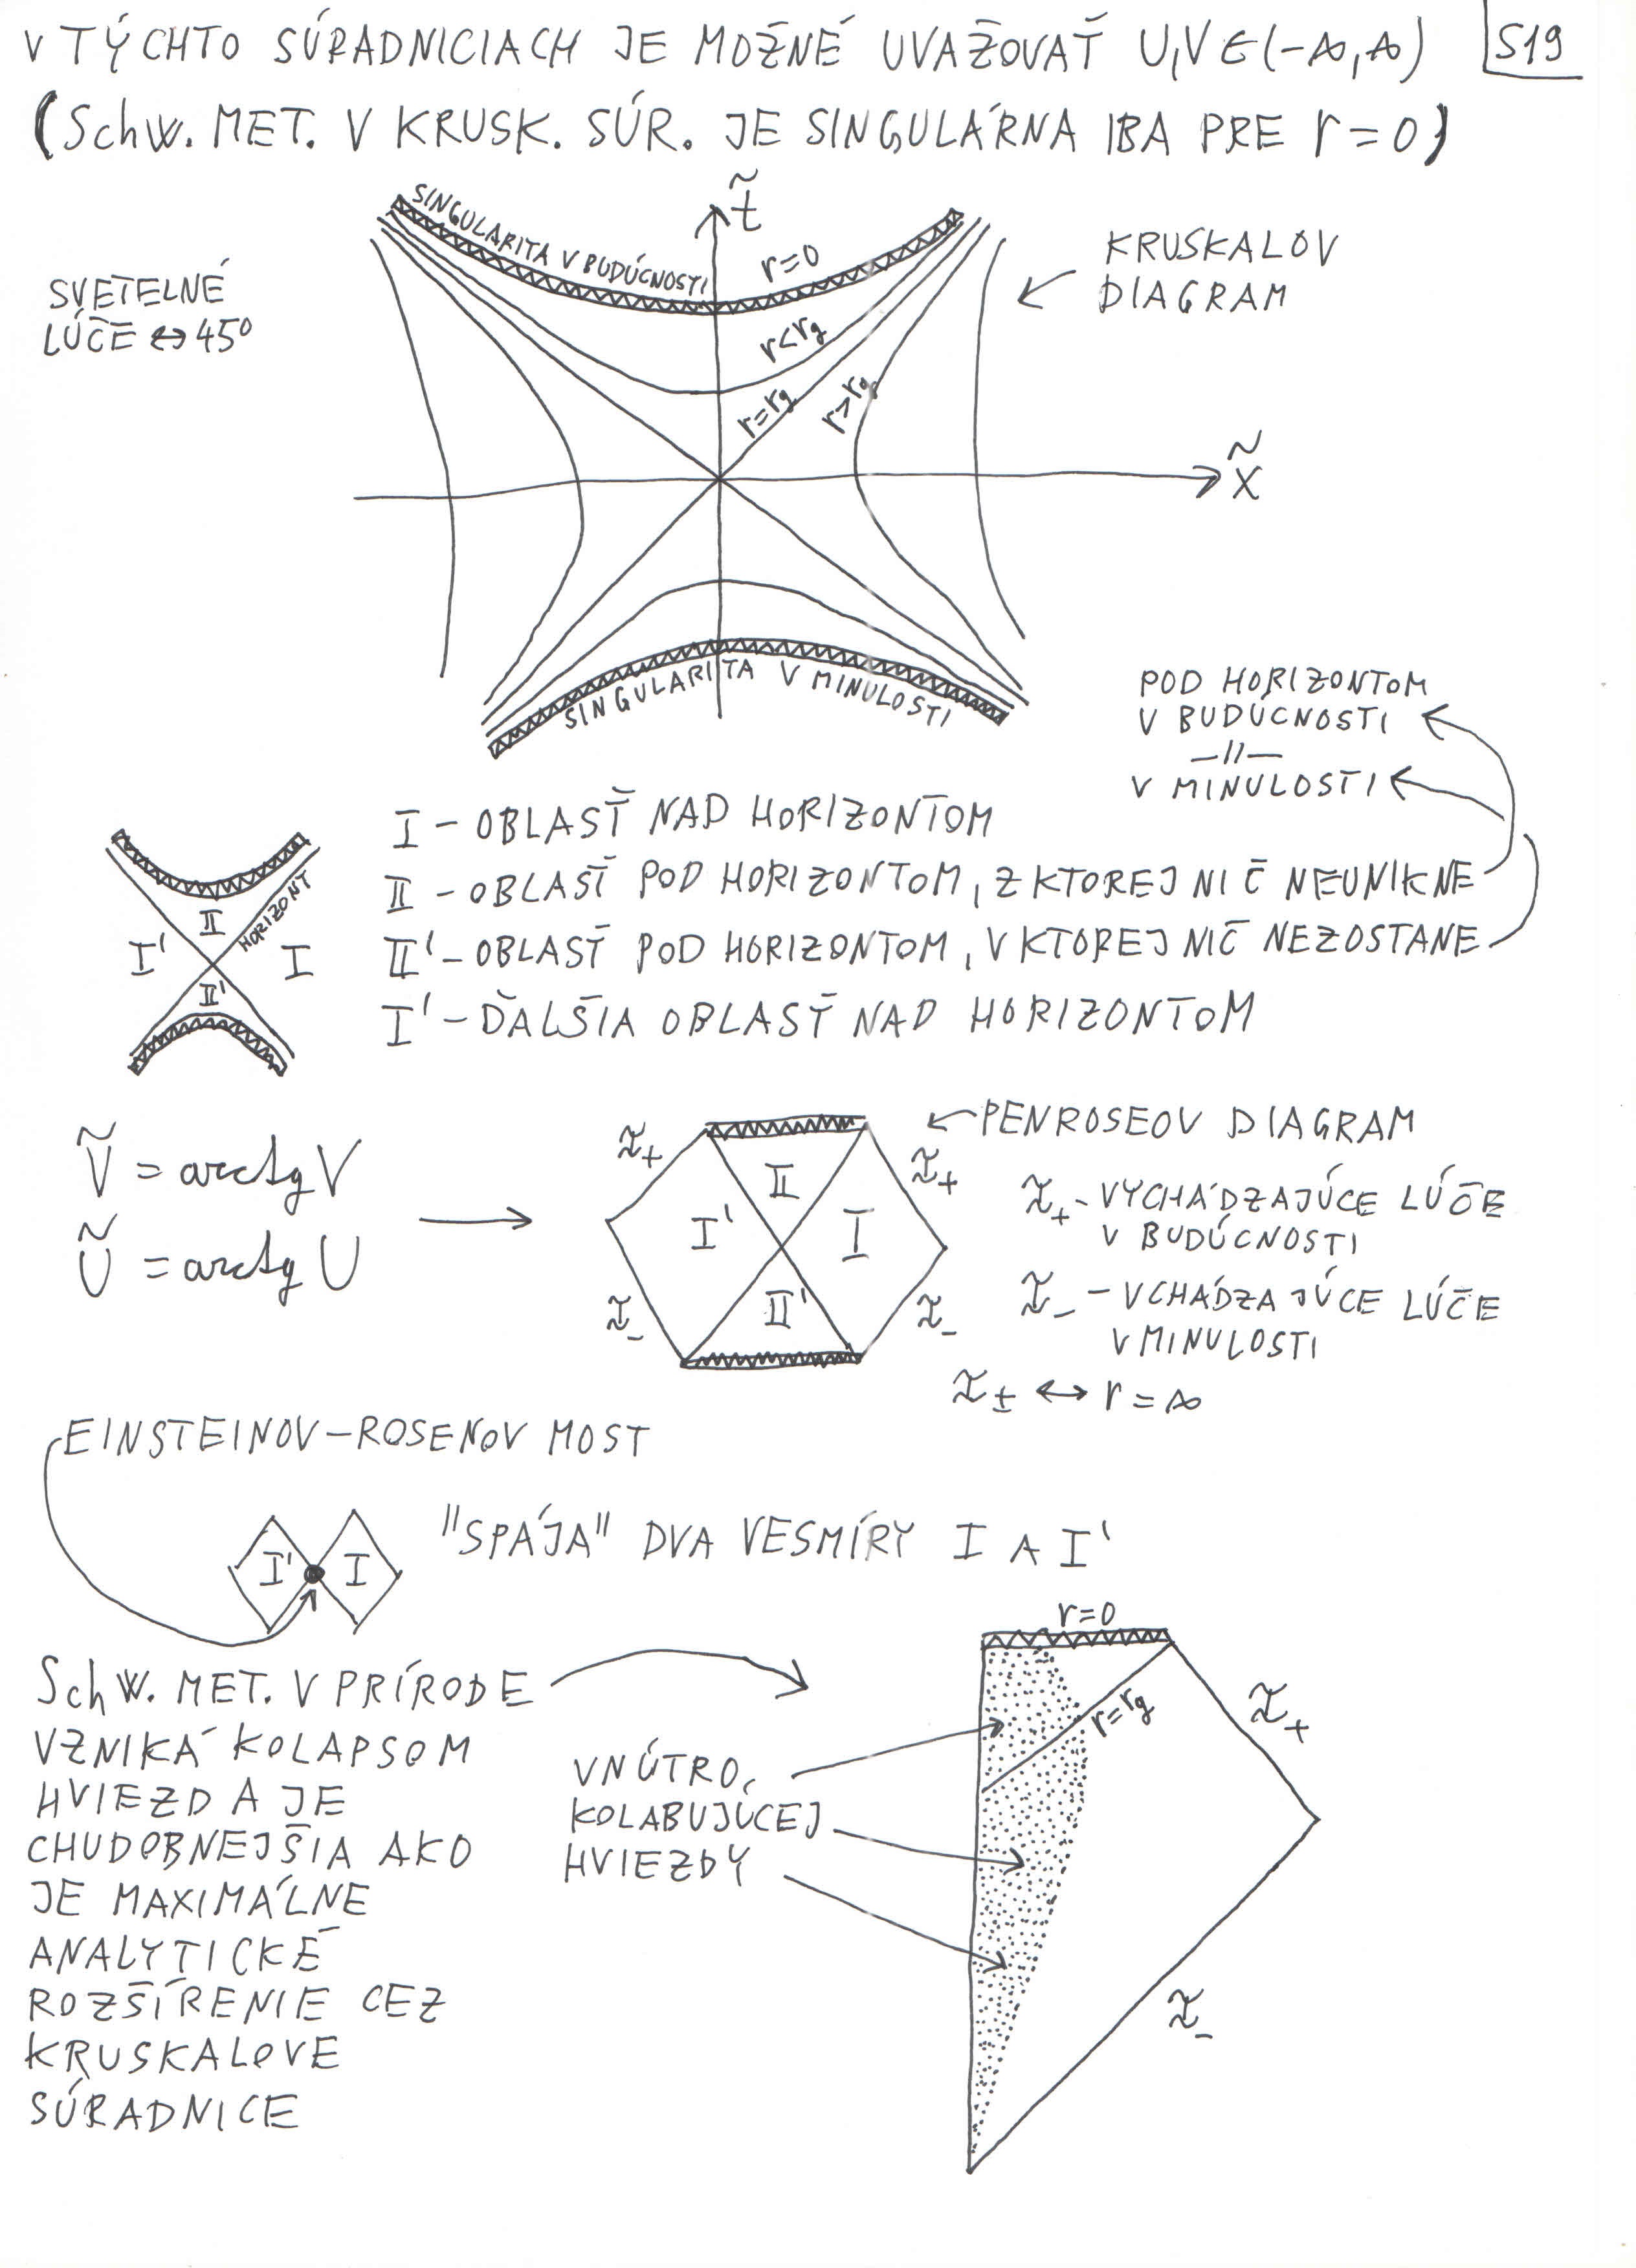 V TÝCHTO SÚRADNICIACH JE MOŽNÉ UVAŽOVAŤ U,V∈(-∞,∞)
S19
(Schw. MET. V KRUSK. SÚR. JE SINGULÁRNA IBA PRE r=0)
SVETELNÉ
LÚČE ↔ 45°
SINGULARITA V BUDÚCNOSTI
r=0
t̃
KRUSKALOV
DIAGRAM
r<r_g
r=r_g
r>r_g
x̃
SINGULARITA V MINULOSTI
POD HORIZONTOM
V BUDÚCNOSTI
—||—
V MINULOSTI
I - OBLASŤ NAD HORIZONTOM
II - OBLASŤ POD HORIZONTOM, Z KTOREJ NIČ NEUNIKNE
II' - OBLASŤ POD HORIZONTOM, V KTOREJ NIČ NEZOSTANE
I' - ĎALŠIA OBLASŤ NAD HORIZONTOM
II
HORIZONT
I'
I
II'
Ṽ = arctg V
Ũ = arctg U
ℐ₊
II
ℐ₊
I'
I
II'
ℐ₋
ℐ₋
PENROSEOV DIAGRAM
ℐ₊ - VYCHÁDZAJÚCE LÚČE
V BUDÚCNOSTI
ℐ₋ - VCHÁDZAJÚCE LÚČE
V MINULOSTI
ℐ± ↔ r=∞
EINSTEINOV-ROSENOV MOST
I'
I
"SPÁJA" DVA VESMÍRY I A I'
Schw. MET. V PRÍRODE
VZNIKÁ KOLAPSOM
HVIEZD A JE
CHUDOBNEJŠIA AKO
JE MAXIMÁLNE
ANALYTICKÉ
ROZŠÍRENIE CEZ
KRUSKALOVE
SÚRADNICE
VNÚTRO
KOLABUJÚCEJ
HVIEZDY
r=0
r=r_g
ℐ₊
ℐ₋